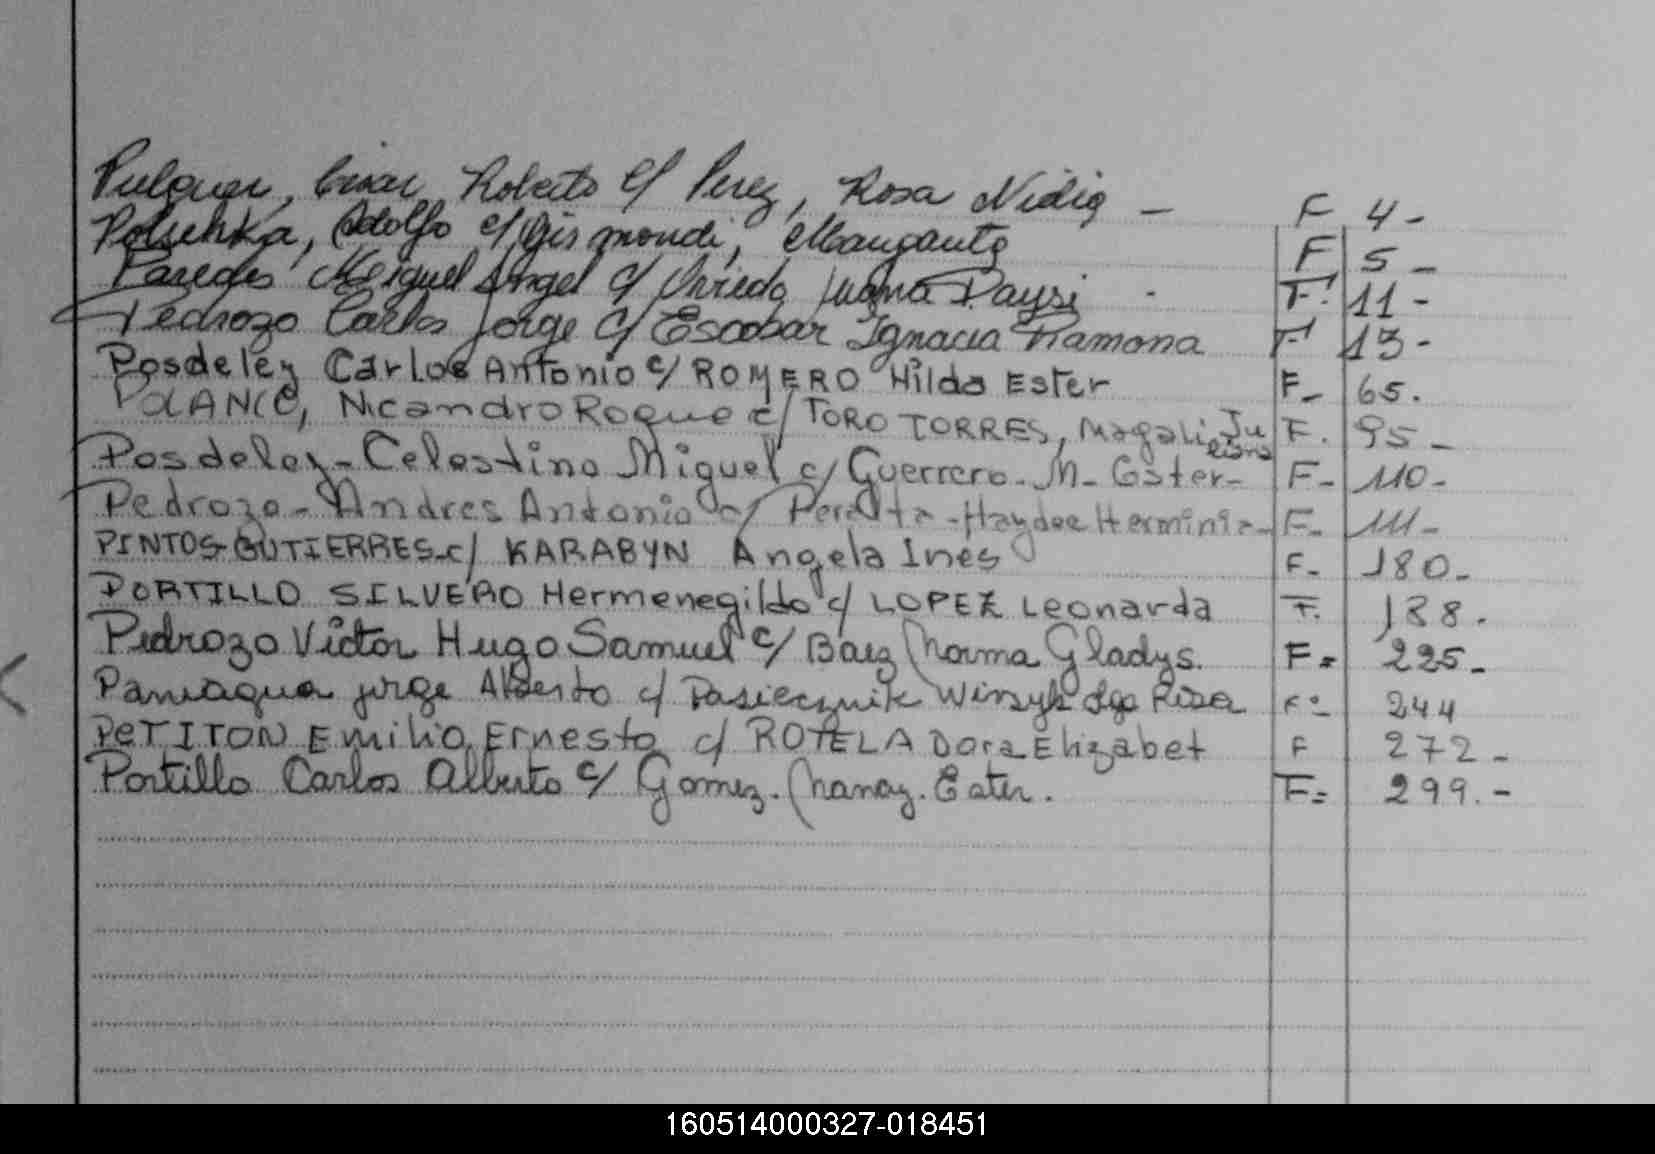 Pulquer, César Roberto c/ Perez, Rosa Nidia - F 4-
Polischka, Adolfo c/ Gismondi, Margarita F 5-
Paredes Miguel Angel c/ Oviedo Juana Daysi - F. 11-
Pedrozo Carlos Jorge c/ Escobar Ignacia Ramona F 13-
Posdeley Carlos Antonio c/ ROMERO Hilda Ester F- 65.
POLANCO, Nicandro Roque c/ TORO TORRES, Magali Ju F. 95-
liana
Posdeley- Celestino Miguel c/ Guerrero- M- Ester- F- 110-
Pedrozo- Andres Antonio c/ Peralta-Haydee Herminia- F- 111-
PINTOS GUTIERRES-c/ KARABYN Angela Ines F- 180-
PORTILLO SILVERO Hermenegildo c/ LOPEZ Leonarda F. 188.
Pedrozo Victor Hugo Samuel c/ Baez Norma Gladys. F= 225-
Paniagua jorge Alberto c/ Pasiecznik Rosa F- 244
PETITON Emilio Ernesto c/ ROTELA Dora Elizabet F 272-
Portillo Carlos Alberto c/ Gomez. Nancy. Ester. F= 299.-
160514000327-018451